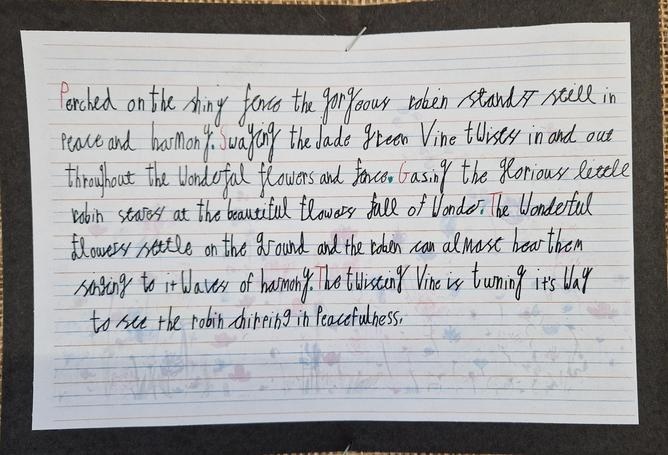 Perched on the shiny fence the gorgeous robin stands still in
peace and harmony. Swaying the Jade green Vine twises in and out
throughout the Wonderful flowers and fence. Gasing the glorious little
robin stares at the beautiful flowers full of Wonder. The Wonderful
flowers settle on the ground and the robin can almost hear them
singing to it Waves of harmony. The twisting Vine is turning it's Way
to see the robin chirping in Peacefulness.